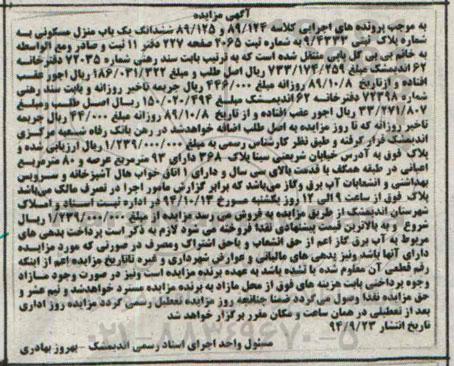 آگهی مزایده
به موجب پرونده های اجرایی کلاسه ۸۹/۱۲۴ و ۸۹/۱۲۵ ششدانگ یک باب منزل مسکونی به
شماره پلاک ثبتی ۹/۴۳۳۳ به شماره ثبت ۴۰۶۵ صفحه ۲۲۷ دفتر ۱۱ ثبت و صادر ومع الواسطه
به خانم بی بی گل بابی منتقل شده است که به ترتیب بابت سند رهنی شماره ۷۲۰۳۵ دفترخانه
۶۲ اندیمشک مبلغ ۷۳۳/۱۷۴/۲۵۹ ریال اصل طلب و مبلغ ۱۸۶/۰۳۱/۳۲۲ ریال اجور عقب
افتاده و ازتاریخ ۸۹/۱۰/۸ روزانه مبلغ ۴۴۶/۰۰۰ ریال جریمه تاخیر روزانه و بابت سند رهنی
شماره ۷۲۳۹۸ دفترخانه ۶۲ اندیمشک مبلغ ۱۵۰/۰۲۰/۴۹۴ ریال اصل طلب ومبلغ
۳۳/۲۷۱/۸۰۷ ریال اجور عقب افتاده و از تاریخ ۸۹/۱۰/۸ روزانه مبلغ ۴۴/۰۰۰ ریال جریمه
تاخیر روزانه که تا روز مزایده به اصل طلب اضافه خواهدشد در رهن بانک رفاه شعبه مرکزی
اندیمشک قرار گرفته و طبق نظر کارشناس رسمی به مبلغ ۱/۲۳۹/۰۰۰/۰۰۰ ریال ارزیابی شده و
پلاک فوق به آدرس خیابان شریعتی سینا پلاک ۳۶۸ دارای ۹۳ مترمربع عرصه و ۸۰ مترمربع
اعیانی در طبقه همکف با قدمت بالای سی سال و دارای ۲ اتاق خواب هال آشپزخانه و سرویس
بهداشتی و انشعابات آب برق وگاز میباشد که برابر گزارش مامور اجرا در تصرف مالک می باشد
پلاک فوق از ساعت ۹ الی ۱۲ روز یکشنبه مورخ ۹۴/۱۰/۱۳ در اداره ثبت اسناد و املاک
شهرستان اندیمشک از طریق مزایده به فروش می رسد مزایده از مبلغ ۱/۲۳۹/۰۰۰/۰۰۰ ریال
شروع و به بالاترین قیمت پیشنهادی نقدا فروخته می شود لازم به ذکر است پرداخت بدهی های
مربوط به آب برق گاز اعم از حق انشعاب و یاحق اشتراک ومصرف در صورتی که مورد مزایده
دارای آنها باشد ونیز بدهی های مالیاتی و عوارض شهرداری و غیره تاتاریخ مزایده اعم از اینکه
رقم قطعی آن معلوم شده یا نشده باشد به عهده برنده مزایده است ونیز در صورت وجود مازاد
وجوه پرداختی بابت هزینه های فوق از محل مازاد به برنده مزایده مسترد خواهدشد و نیم عشر و
حق مزایده نقدا وصول می گردد ضمنا چنانچه روز مزایده تعطیل رسمی گردد مزایده روز اداری
بعد از تعطیلی در همان ساعت و مکان مقرر برگزار خواهد شد
تاریخ انتشار ۹۴/۹/۲۳
مسئول واحد اجرای اسناد رسمی اندیمشک – بهروز بهادری
۰۲۱-۸۸۳۴۹۶۷۰-۵